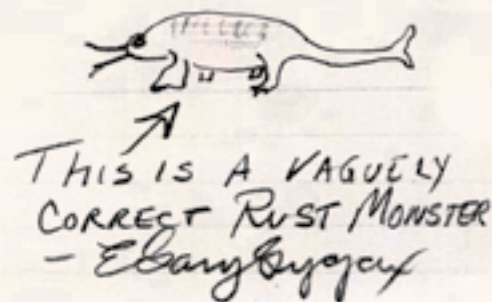 THIS IS A VAGUELY
CORRECT RUST MONSTER
- E Gary Gygax